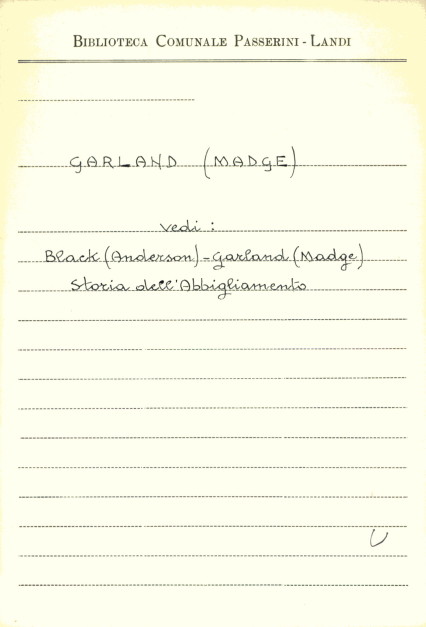 Biblioteca Comunale Passerini - Landi
GARLAND (MADGE)
vedi :
Black (Anderson) - Garland (Madge)
Storia dell'Abbigliamento
U